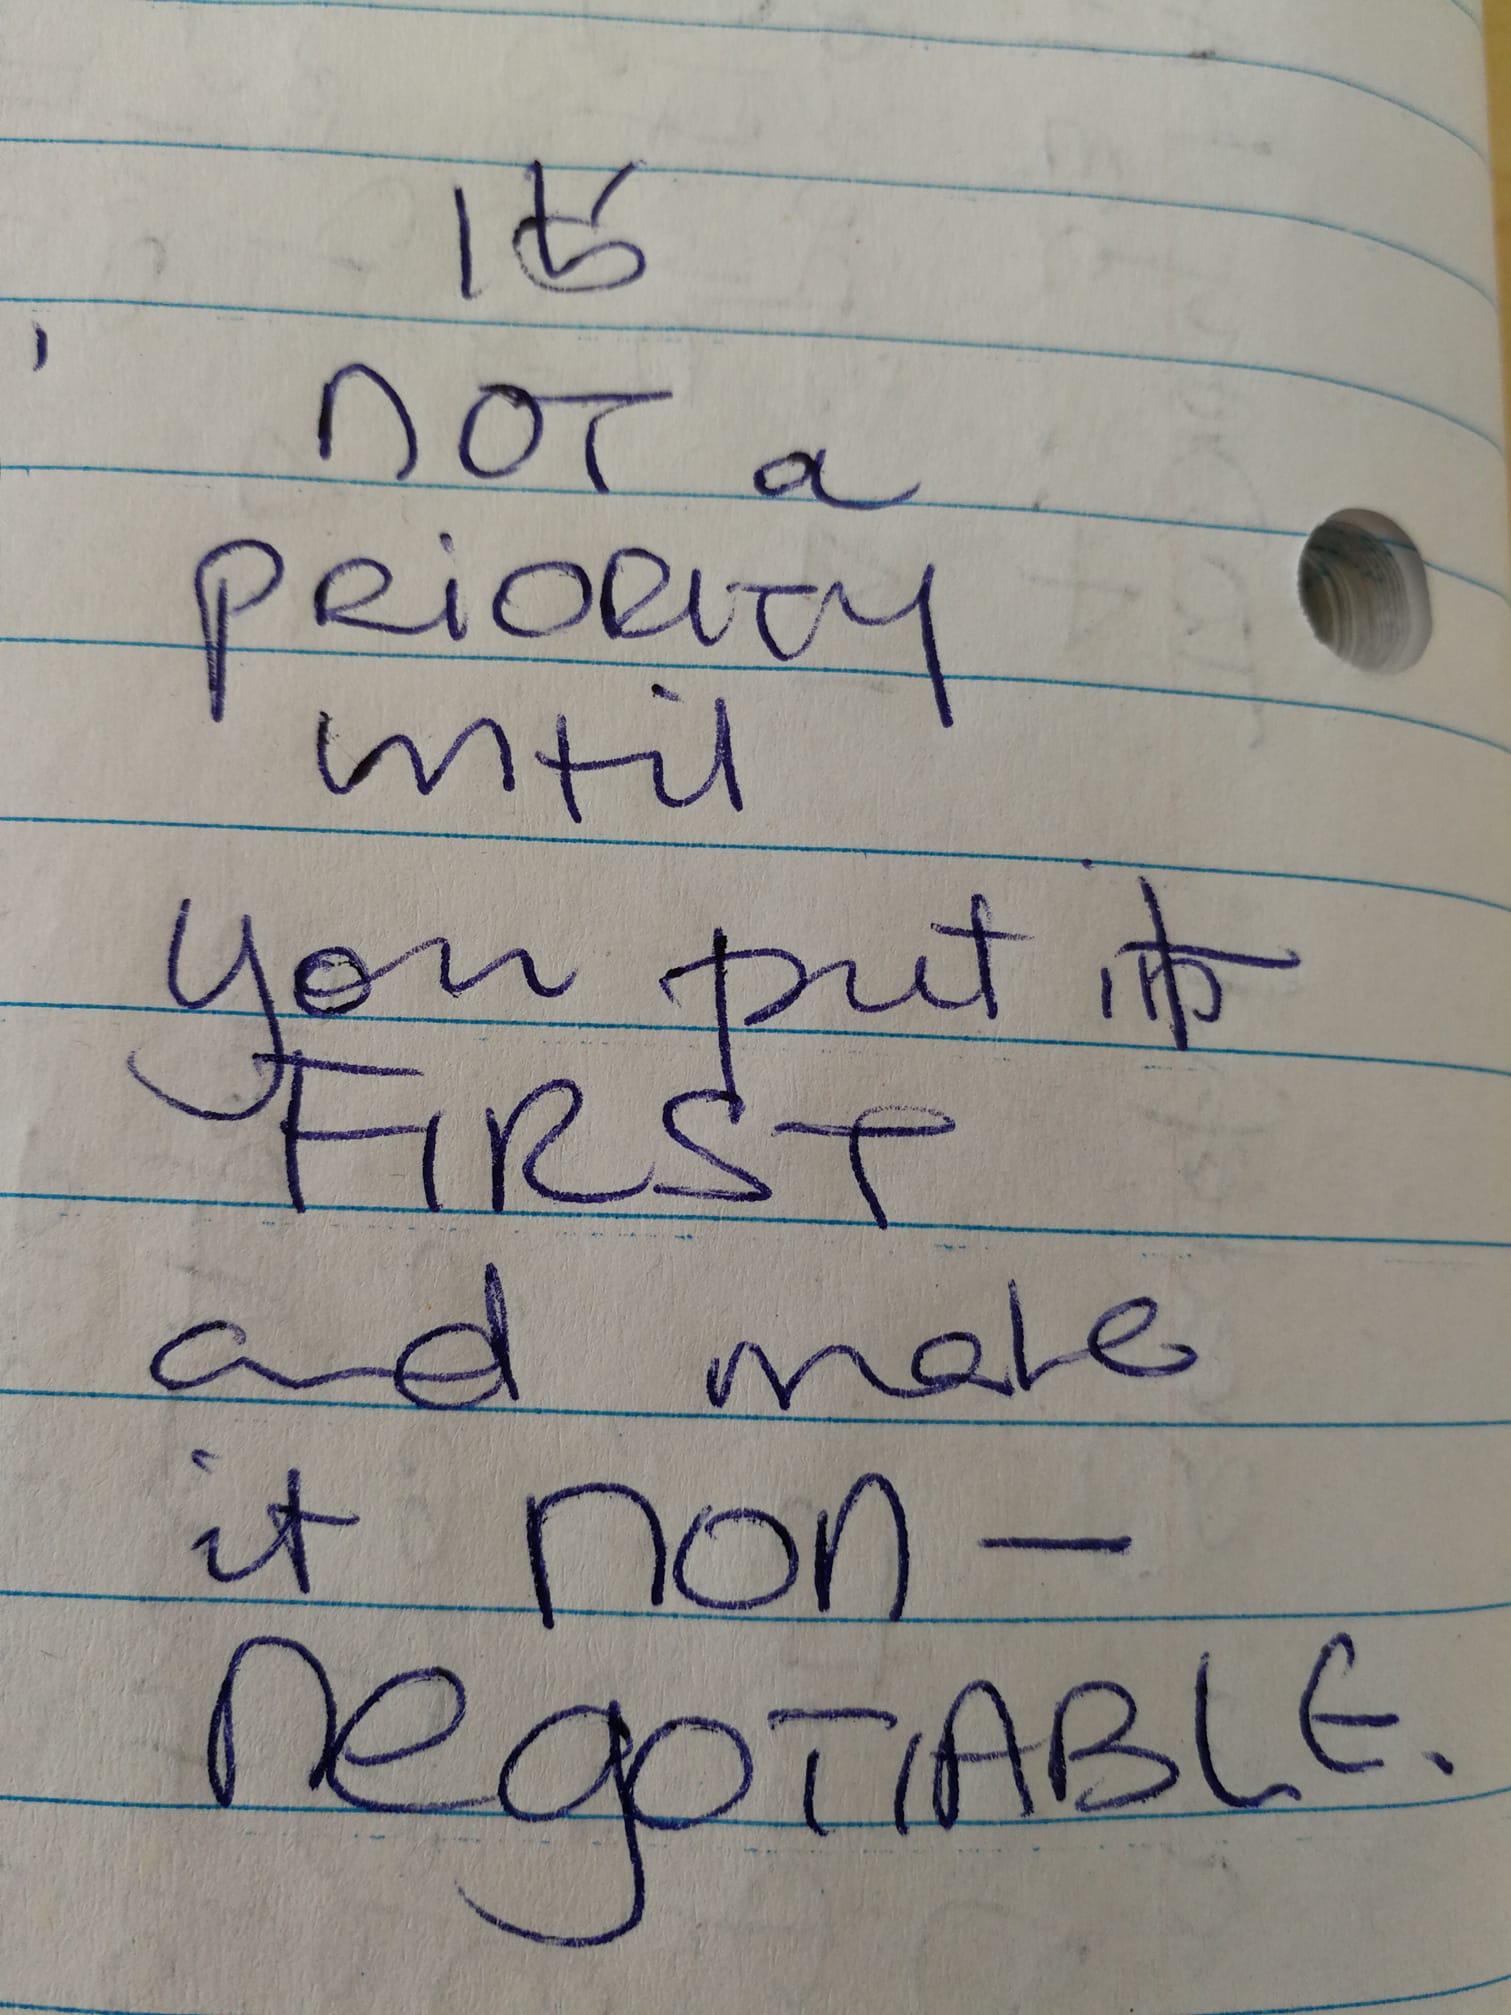 Its
NOT a
PRiORITY
until
you put it
FIRST
and make
it non-
NegOTIABLE.